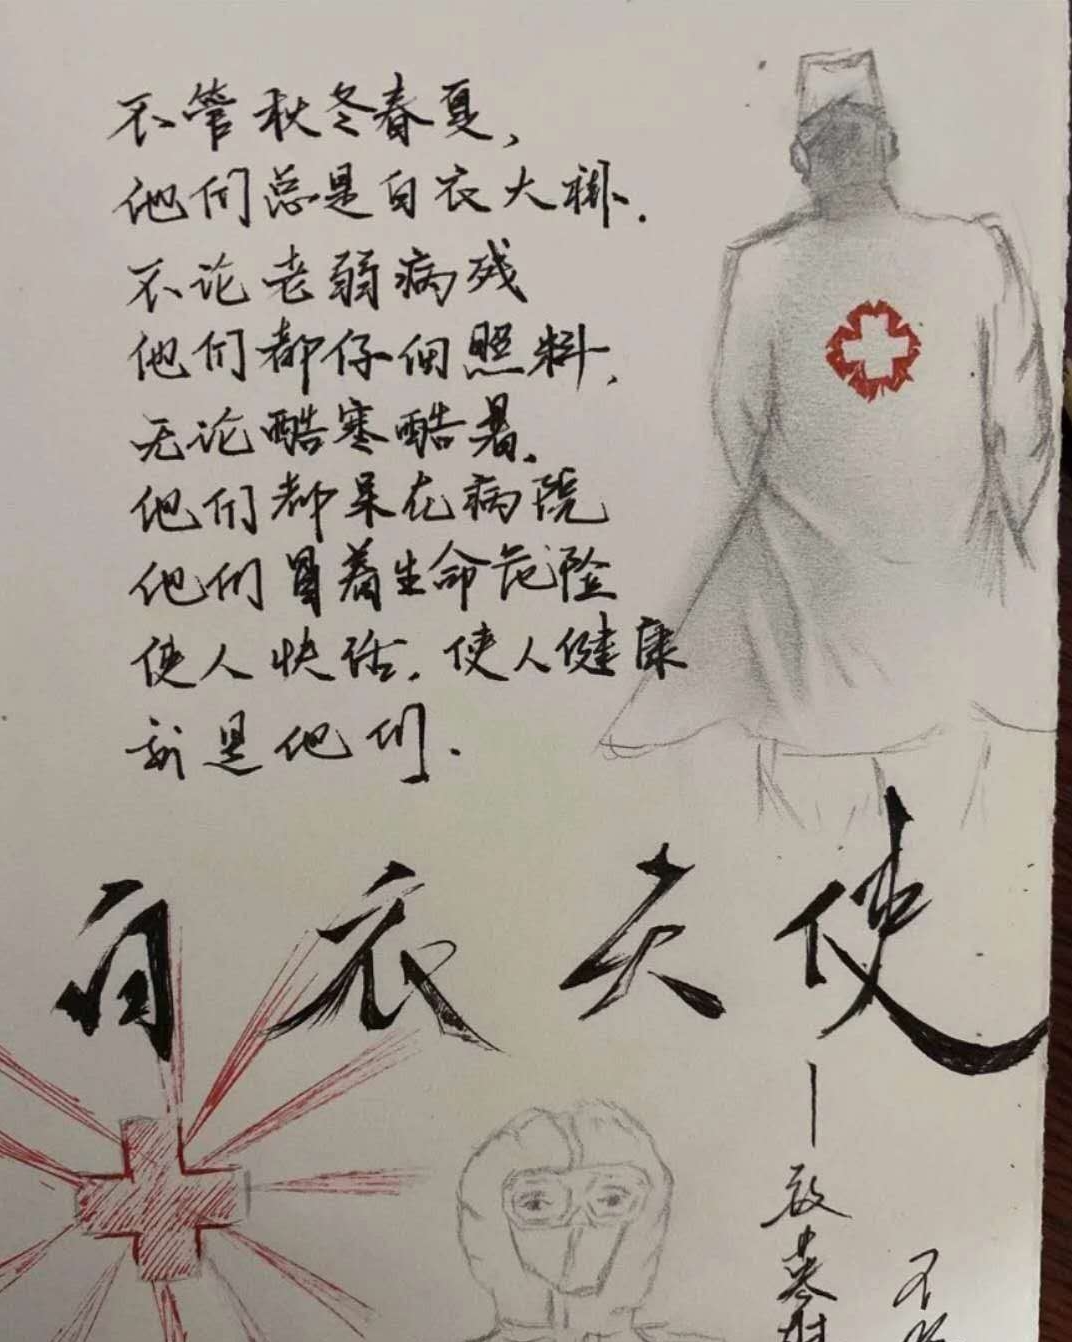 不管秋冬春夏，
他们总是白衣大褂.
不论老弱病残
他们都仔细照料，
无论酷寒酷暑.
他们都呆在病院
他们冒着生命危险
使人快活.使人健康
就是他们.
白衣天使